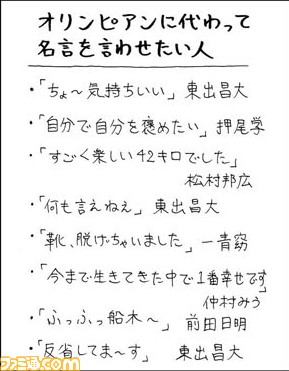 オリンピアンに代わって
名言を言わせたい人
・「ちょ～気持ちいい」 東出昌大
・「自分で自分を褒めたい」 押尾学
・「すごく楽しい42キロでした」
松村邦広
・「何も言えねえ」 東出昌大
・「靴、脱げちゃいました」 一青窈
・「今まで生きてきた中で1番幸せです」
仲村みう
・「ふっふっ船木～」 前田日明
・「反省してま～す」 東出昌大
ファミ通.com